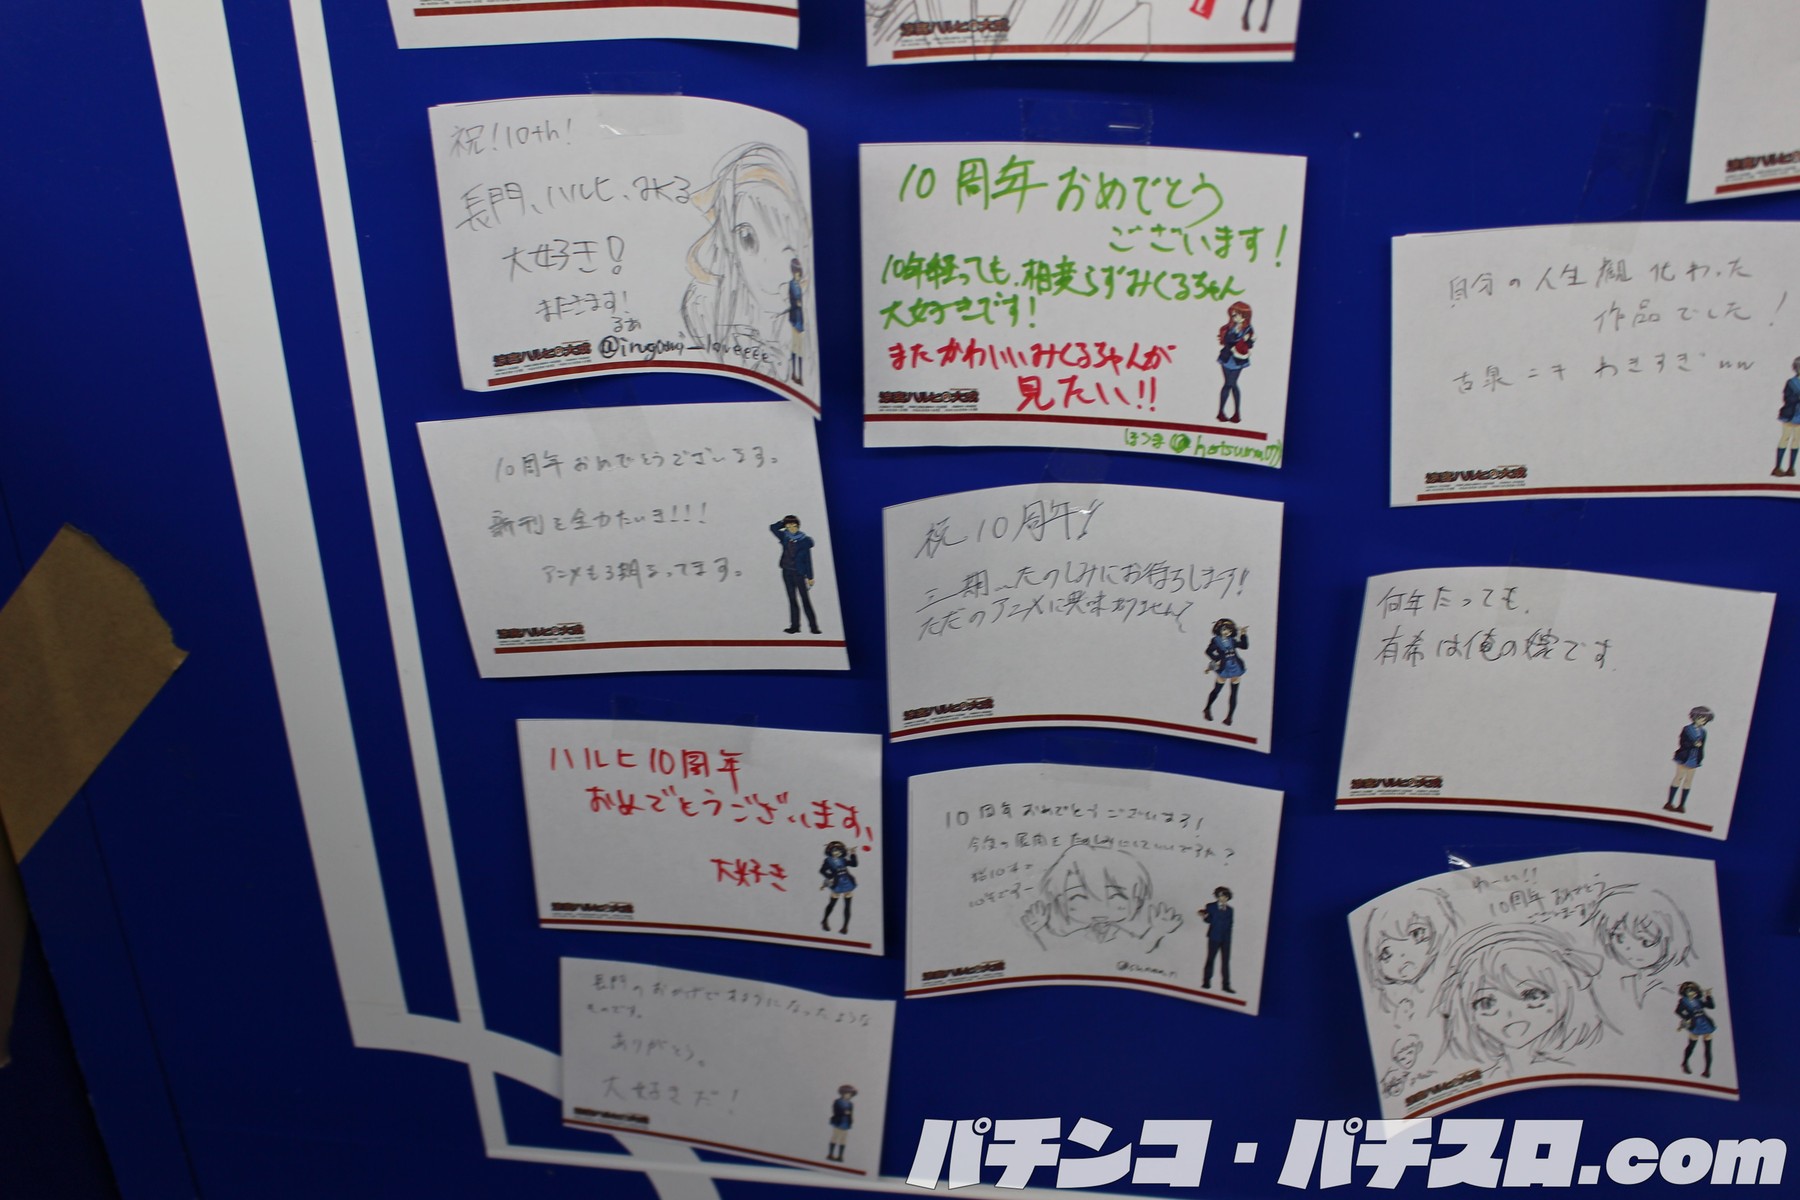 祝！10th！
長門、ハルヒ、みくる
大好き！
またきます！
るぁ
涼宮ハルヒの大成
10周年おめでとう
ございます！
10年経っても、相変らずみくるちゃん
大好きです！
またかわいいみくるちゃんが
見たい!!
ほつま
涼宮ハルヒの大成
自分の人生観変わった
作品でした！
古泉ニキわきすぎww
涼宮ハルヒの大成
10周年おめでとうございます。
新刊を全力たいき!!!
アニメも3期まってます。
涼宮ハルヒの大成
祝10周年！
三期…たのしみにお待ちします！
ただのアニメに興味ありません
涼宮ハルヒの大成
何年たっても、
有希は俺の嫁です
涼宮ハルヒの大成
ハルヒ10周年
おめでとうございます！
大好き
涼宮ハルヒの大成
10周年おめでとうございます！
今後の展開を
涼宮ハルヒの大成
わーい!!
10周年おめでとう
ございます!!
涼宮ハルヒの大成
長門のおかげで
ようになったような
ものです。
ありがとう。
大好きだ！
涼宮ハルヒの大成
パチンコ・パチスロ.com